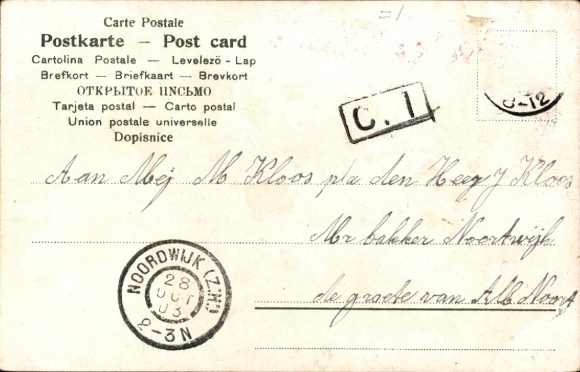 Carte Postale
Postkarte — Post card
Cartolina Postale — Levelező-Lap
Brefkort — Briefkaart — Brevkort
ОТКРЫТОЕ ПИСЬМО
Tarjeta postal — Carto postal
Union postale universelle
Dopisnice
C. 1
8-12
Aan Mej M Kloos p/a den Heer J Kloos
Mr bakker Noortwijk
de groete van Noort
NOORDWIJK (Z.H.)
28
OCT
03
2-3N